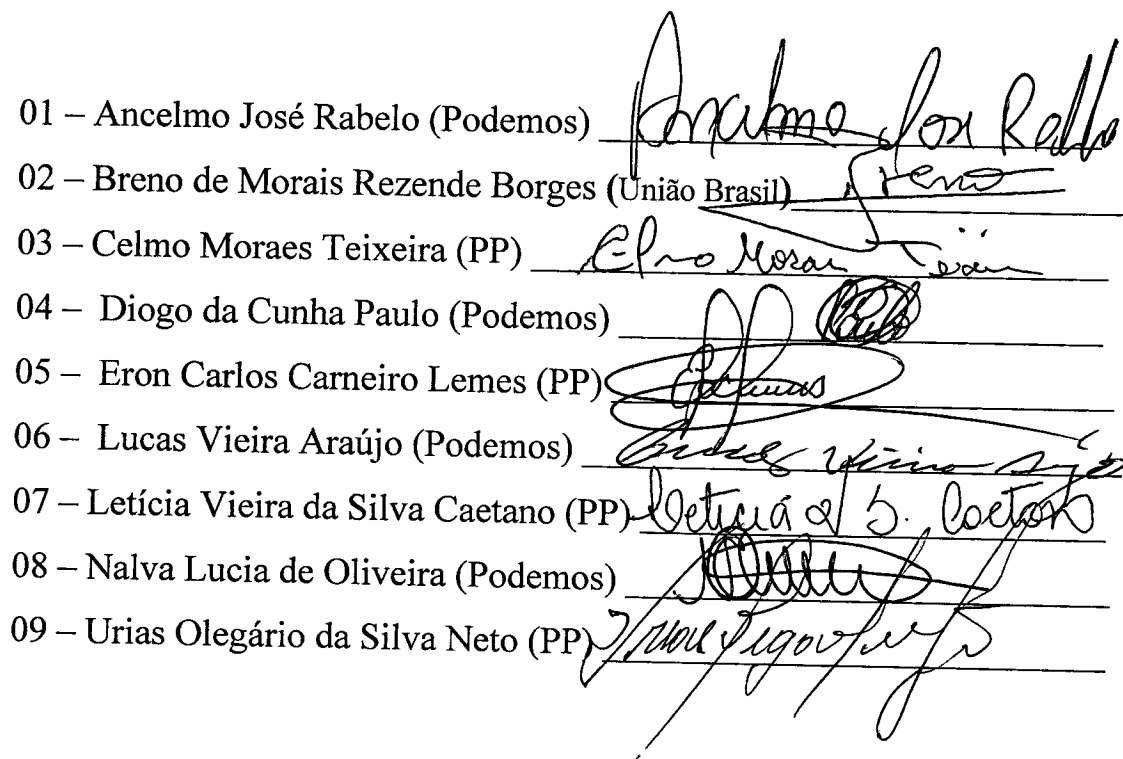 01 – Ancelmo José Rabelo (Podemos) Ancelmo José Rabelo
02 – Breno de Morais Rezende Borges (União Brasil) Breno
03 – Celmo Moraes Teixeira (PP) Celmo Moraes Teixeira
04 – Diogo da Cunha Paulo (Podemos) Paulo
05 – Eron Carlos Carneiro Lemes (PP)
06 – Lucas Vieira Araújo (Podemos) Lucas Vieira Araújo
07 – Letícia Vieira da Silva Caetano (PP) Leticia V S. Caetano
08 – Nalva Lucia de Oliveira (Podemos)
09 – Urias Olegário da Silva Neto (PP)